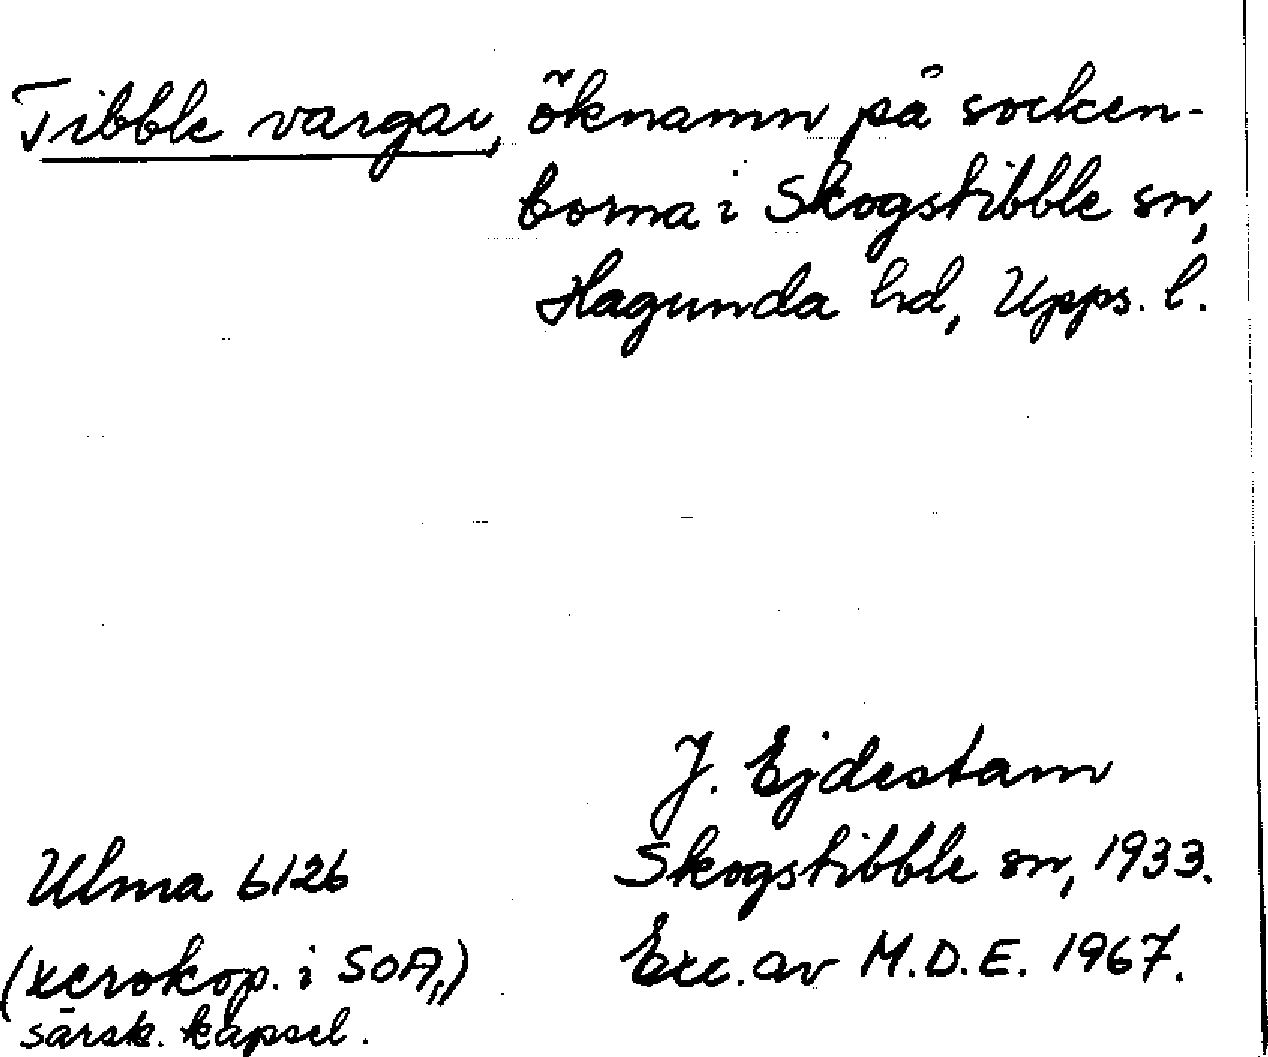 Tibble vargar, öknamn på socken-
borna i Skogstibble sn,
Hagunda hd, Upps. l.
J. Ejdestam
Skogstibble sn, 1933.
Exc. av M.D.E. 1967.
Ulma 6126
(xerokop. i SOA,)
särsk. kapsel.